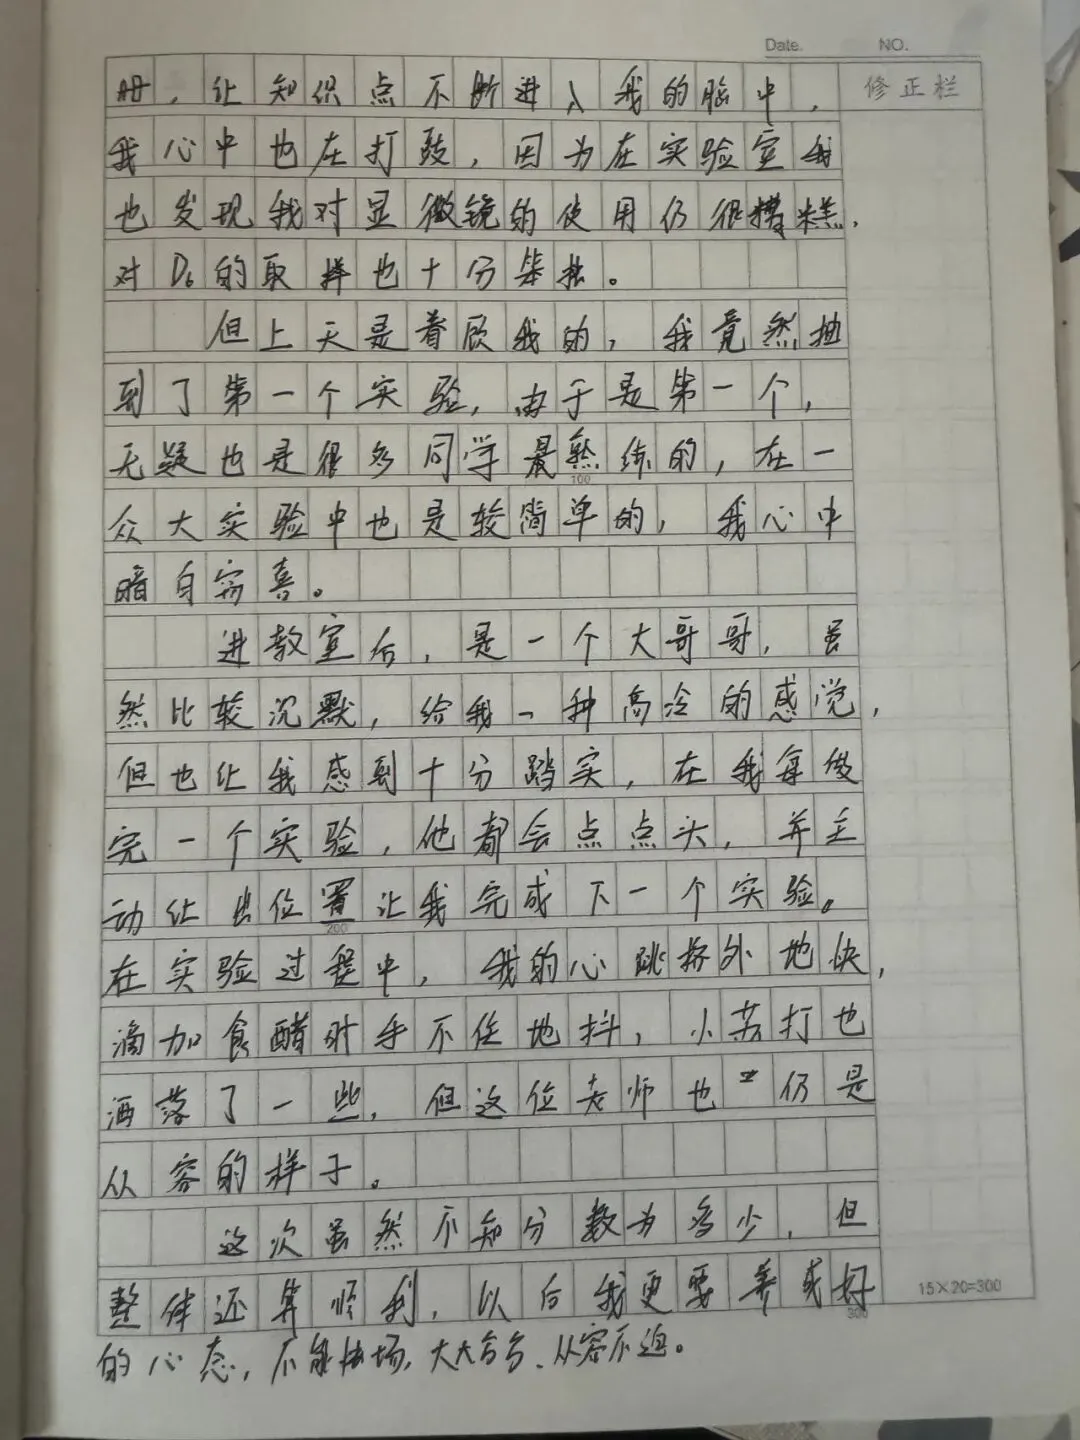 Date.    NO.
修正栏
册，让知识点不断进入我的脑中，
我心中也在打鼓，因为在实验室我
也发现我对显微镜的使用仍很糟糕，
对D6的取样也十分笨拙。
但上天是眷顾我的，我竟然抽
到了第一个实验，由于是第一个，
无疑也是很多同学最熟练的，在一
众大实验中也是较简单的，我心中
暗自窃喜。
进教室后，是一个大哥哥，虽
然比较沉默，给我一种高冷的感觉，
但也让我感到十分踏实，在我每做
完一个实验，他都会点点头，并主
动让出位置让我完成下一个实验。
在实验过程中，我的心跳格外地快，
滴加食醋时手不住地抖，小苏打也
洒落了一些，但这位老师也仍是
从容的样子。
这次虽然不知分数为多少，但
整体还算顺利，以后我更要养成好
的心态，不能怯场，大大方方、从容不迫。
100
200
300
15×20=300